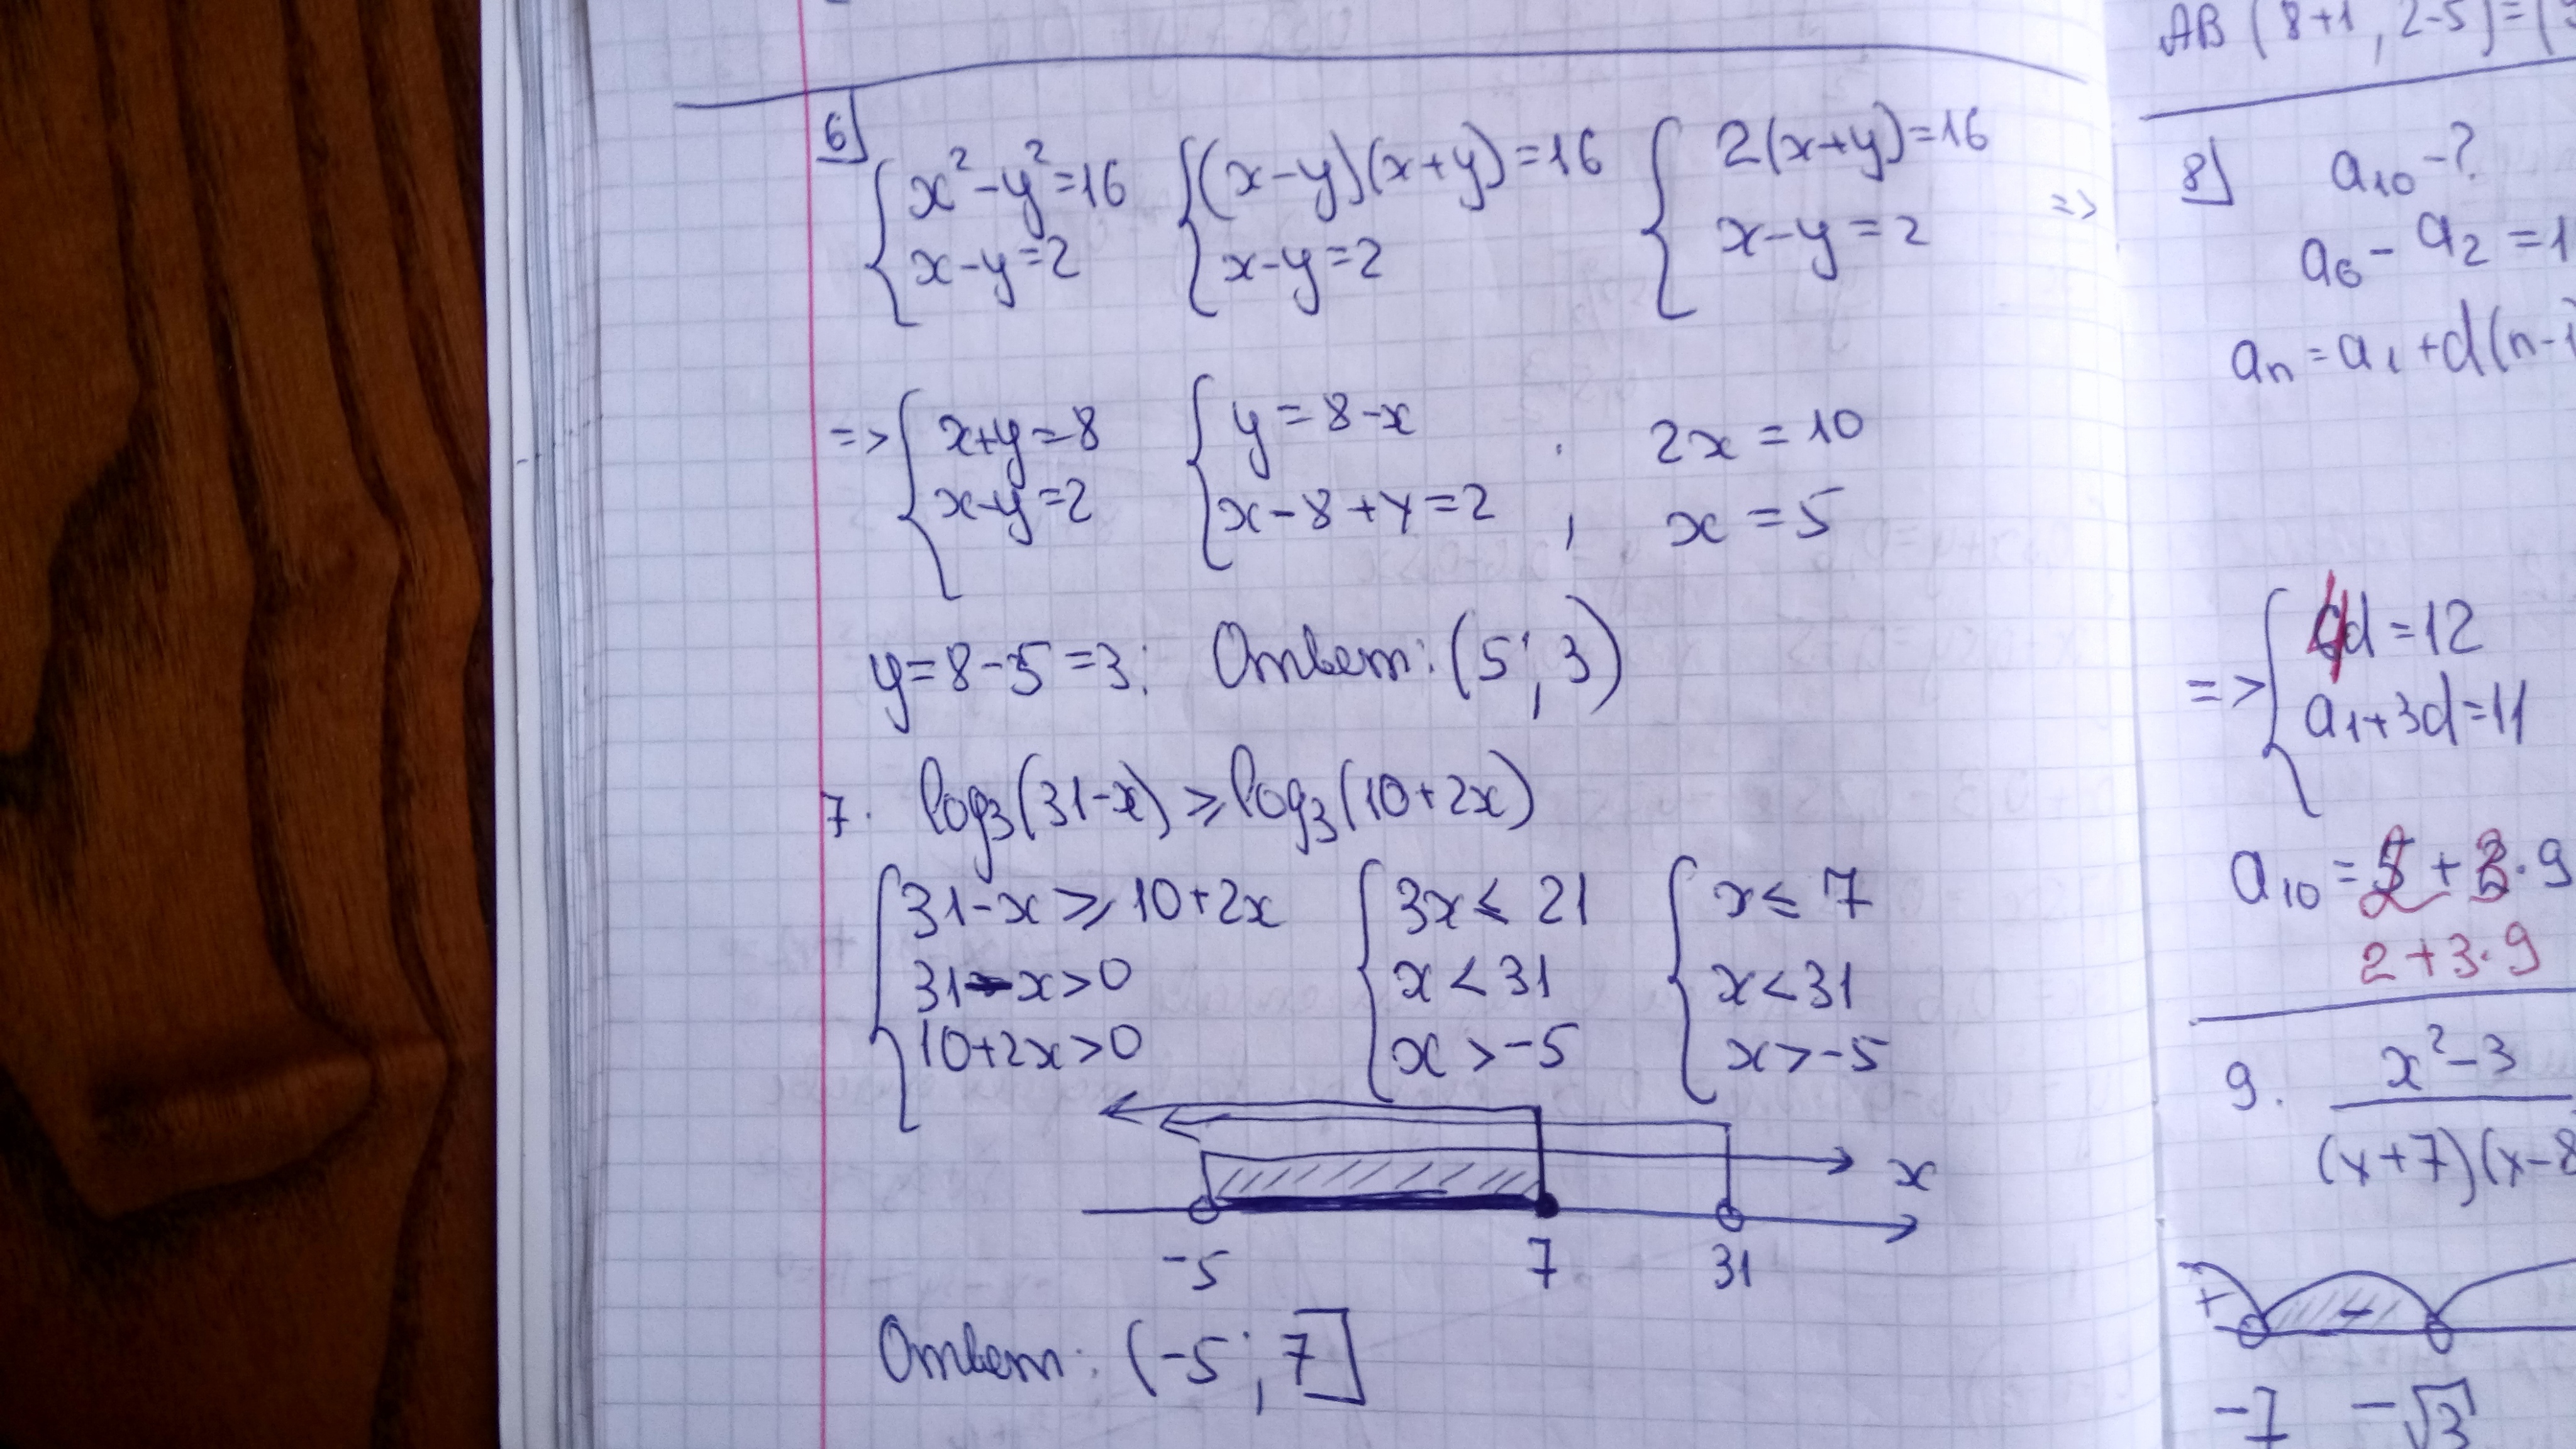 6)
{ x²-y²=16 { (x-y)(x+y)=16 { 2(x+y)=16
x-y=2 x-y=2 x-y=2 =>
=> { x+y=8 { y=8-x 2x=10
x-y=2 x-8+x=2 , x=5
y=8-5=3; Ответ: (5; 3)
7. log₃(31-x) ⩾ log₃(10+2x)
{ 31-x ⩾ 10+2x { 3x ⩽ 21 { x ⩽ 7
31-x>0 x<31 x<31
10+2x>0 x>-5 x>-5
x
-5 7 31
Ответ: (-5; 7]
AB (8+1, 2-5)=(
8) a₁₀-?
a₆-a₂=1
aₙ=a₁+d(n-1
=> { 4d=12
a₁+3d=11
a₁₀=2+3·9
2+3·9
9. x²-3
(x+7)(x-8
+ -
-7 -√3